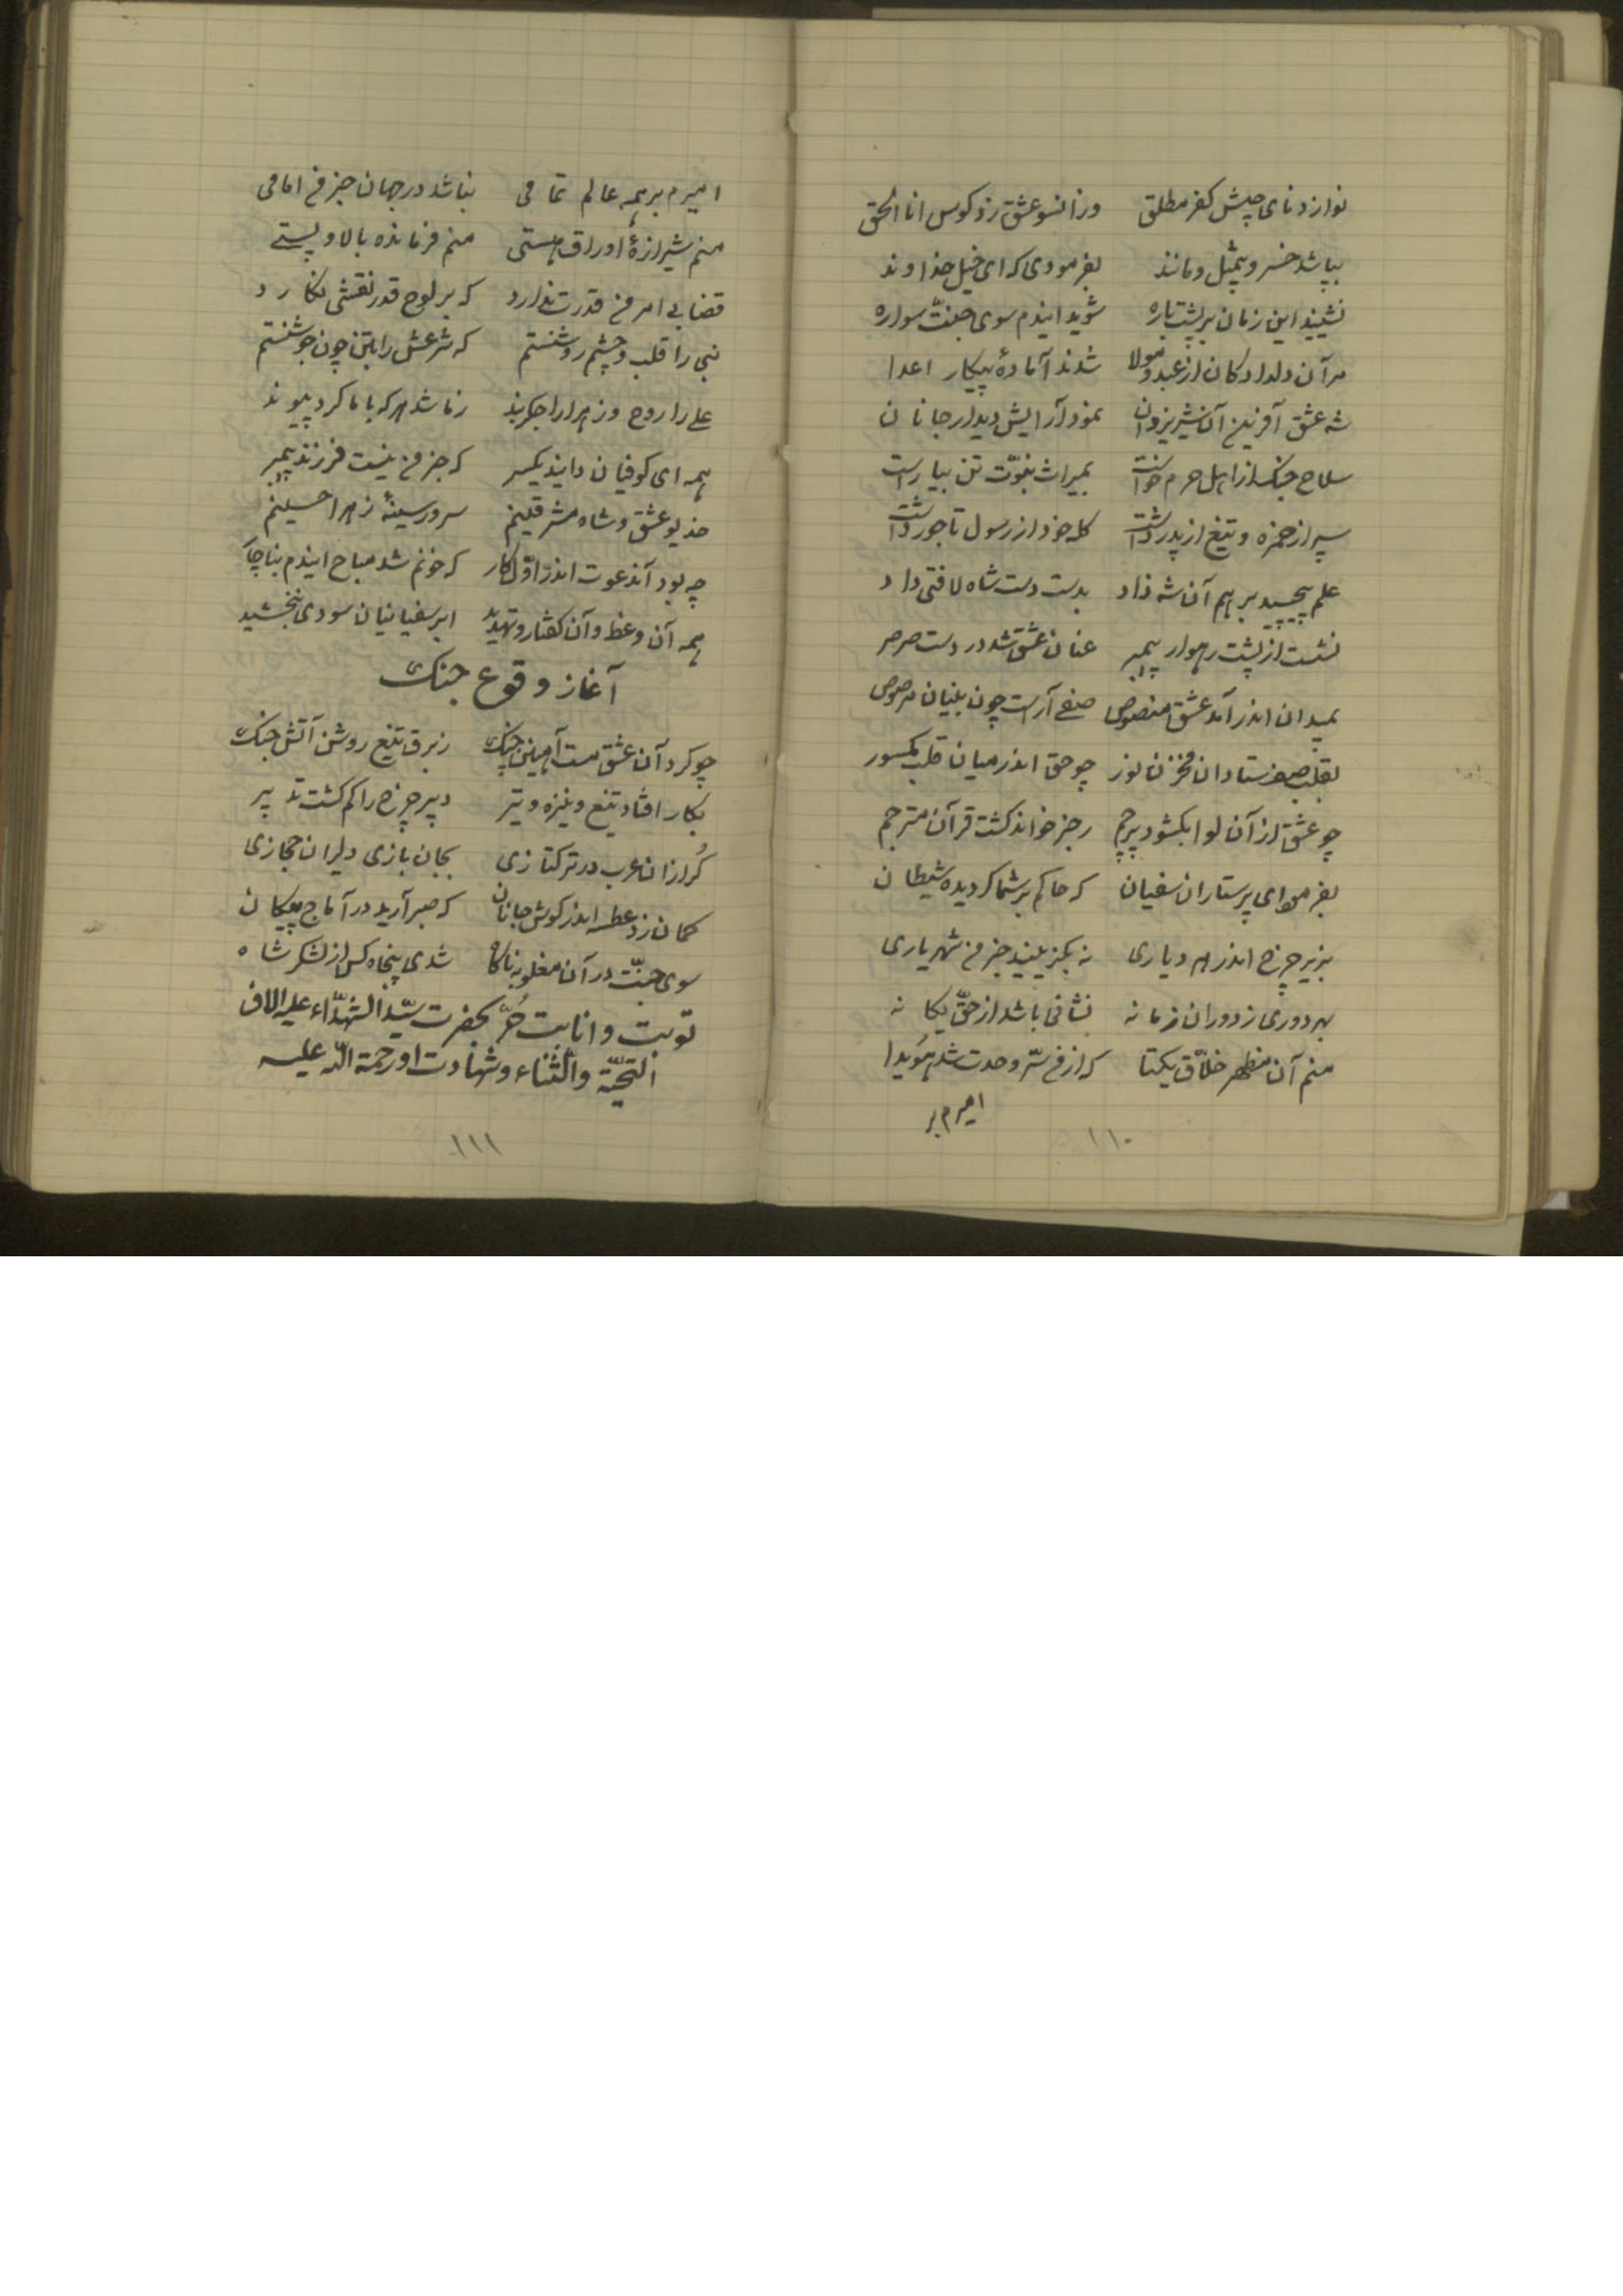 نوازد نای جیش کفر مطلق وزانسو عشق زد کوس انا الحق
بپا شد خسرو بیمثل و مانند بفرمودی که ای خیل خداوند
نشیند این زمان بر پشت باره شوید ایندم سوی جنّت سواره
مر آن دلدادکان از عبد و مولا شدند آمادهٔ پیکار اعدا
شه عشق آفرین آن شیر یزدان نمود آرایش دیدار جانان
سلاح جنک از اهل حرم خواست بمیراث نبوّت تن بیاراست
سپر از حمزه و تیغ از پدر داشت کله خود از رسول تاجور داشت
علم پیچید بر هم آن شه زاد بدست دست شاه لافتی داد
نشست از پشت رهوار پیمبر عنان عشق شد در دست صرصر
بمیدان اندر آمد عشق منصوص صفی آراست چون بنیان مرصوص
بقلب صف ستاد آن مخزن نور چو حق اندر میان قلب مکسور
چو عشق از آن لوا بکشود پرچم رجز خواند کشت قرآن مترجم
بفرمود ای پرستاران سفیان که حاکم بر شما کردیده شیطان
بزیر چرخ اندر هر دیاری نه بکزینید جز من شهریاری
بهر دوری ز دوران زمانه نشانی باشد از حقّ یکانه
منم آن مظهر خلّاق یکتا که از من سرّ وحدت شد هویدا
امیرم بر
۱۱۰
امیرم بر همه عالم تمامی نباشد در جهان جز من امامی
منم شیرازهٔ اوراق هستی منم فرمانده بالا و پستی
قضا بی امر من قدرت ندارد که بر لوح قدر نقشی نکارد
نبی را قلب و چشم روشنستم که شرعش را بتن چون جوشنستم
علی را روح و زهرا را جکربند ز ما شد هر که با ما کرد پیوند
همه ای کوفیان دانید یکسر که جز من نیست فرزند پیمبر
خدیو عشق و شاه مشرقینم سرور سینهٔ زهرا حسینم
چه بود آندعوت اندر اوّل کار که خونم شد مباح ایندم بناچار
همه آن وعظ و آن کفتار و تهدید ابر سفیانیان سودی نبخشید
آغاز وقوع جنک
چو کرد آن عشق مست آهین جنک ز برق تیغ روشن آتش جنک
بکار افتاد تیغ و نیزه و تیر دبیر چرخ را کم کشت تدبیر
کُرازان عرب در ترکتازی بجان بازی دلیران حجازی
کمان زد عطسه اندر کوش جانان که صبر آرید در آماج پیکان
سوی جنّت در آن مغلوبه ناکاه شدی پنجاه کس از لشکر شاه
توبت و انابت حُرّ بحضرت سیّد الشهدّاء علیه الاف
التحیّة والثناء و شهادت او رحمة اللّه علیه
۱۱۱